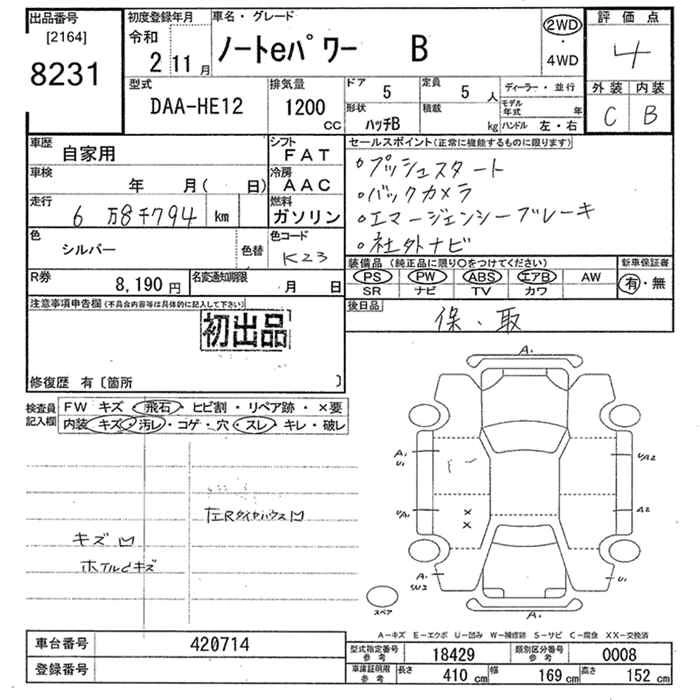 出品番号
[2164]
8231
初度登録年月
令和
2 11月
車名・グレード
ノートeパワー B
2WD
・
4WD
評価点
4
外装 内装
C B
型式
DAA-HE12
排気量
1200
CC
ドア
5
定員
5 人
形状
ハッチB
積載
kg
ディーラー・並行
モデル年式 年
ハンドル 左・右
車歴
自家用
車検
年 月( 日)
走行
6万8千794 km
色
シルバー
色替
シフト
FAT
冷房
AAC
燃料
ガソリン
色コード
K23
R券
8,190円
名変通知期限
月 日
セールスポイント(正常に機能するものに限ります)
○プッシュスタート
○バックカメラ
○エマージェンシーブレーキ
○社外ナビ
装備品(純正品に限り○をつけてください)
PS PW ABS エアB AW
SR ナビ TV カワ
新車保証書
有・無
後日品
保、取
注意事項申告欄(不具合内容等は具体的に記入して下さい)
初出品
修復歴 有〔箇所 〕
検査員記入欄
FW キズ・飛石・ヒビ割・リペア跡・×要
内装 キズ・汚レ・コゲ・穴・スレ・キレ・破レ
左Rタイヤハウス凹
キズ凹
ホイルどキズ
A.
A.
U1
U/A2
U/A1
A2
×
×
A.
U1
A.
スペア
A-キズ E-エクボ U-凹み W-補修跡 S-サビ C-腐食 XX-交換済
車台番号
420714
登録番号
型式指定番号
参考
18429
類別区分番号
参考
0008
車庫証明用
参考
長さ
410 cm
幅
169 cm
高さ
152 cm